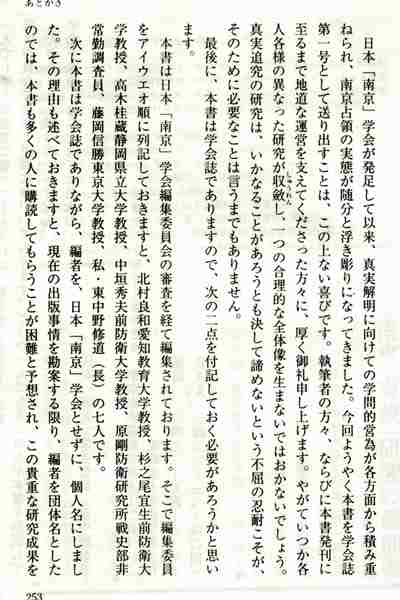 あとがき
日本「南京」学会が発足して以来、真実解明に向けての学問的営為が各方面から積み重
ねられ、南京占領の実態が随分と浮き彫りになってきました。今回ようやく本書を学会誌
第一号として送り出すことは、この上ない喜びです。執筆者の方々、ならびに本書発刊に
至るまで地道な運営を支えてくださった方々に、厚く御礼申し上げます。やがていつか各
人各様の異なった研究が収斂し、一つの合理的な全体像を生まないではおかないでしょう。
しゅうれん
真実追究の研究は、いかなることがあろうとも決して諦めないという不屈の忍耐こそが、
そのために必要なことは言うまでもありません。
最後に、本書は学会誌でありますので、次の二点を付記しておく必要があろうかと思い
ます。
本書は日本「南京」学会編集委員会の審査を経て編集されております。そこで編集委員
をアイウエオ順に列記しておきますと、北村良和愛知教育大学教授、杉之尾宜生前防衛大
学教授、高木桂蔵静岡県立大学教授、中垣秀夫前防衛大学教授、原剛防衛研究所戦史部非
常勤調査員、藤岡信勝東京大学教授、私・東中野修道（長）の七人です。
次に本書は学会誌でありながら、編者を、日本「南京」学会とせずに、個人名にしまし
た。その理由も述べておきますと、現在の出版事情を勘案する限り、編者を団体名とした
のでは、本書も多くの人に購読してもらうことが困難と予想され、この貴重な研究成果を
253